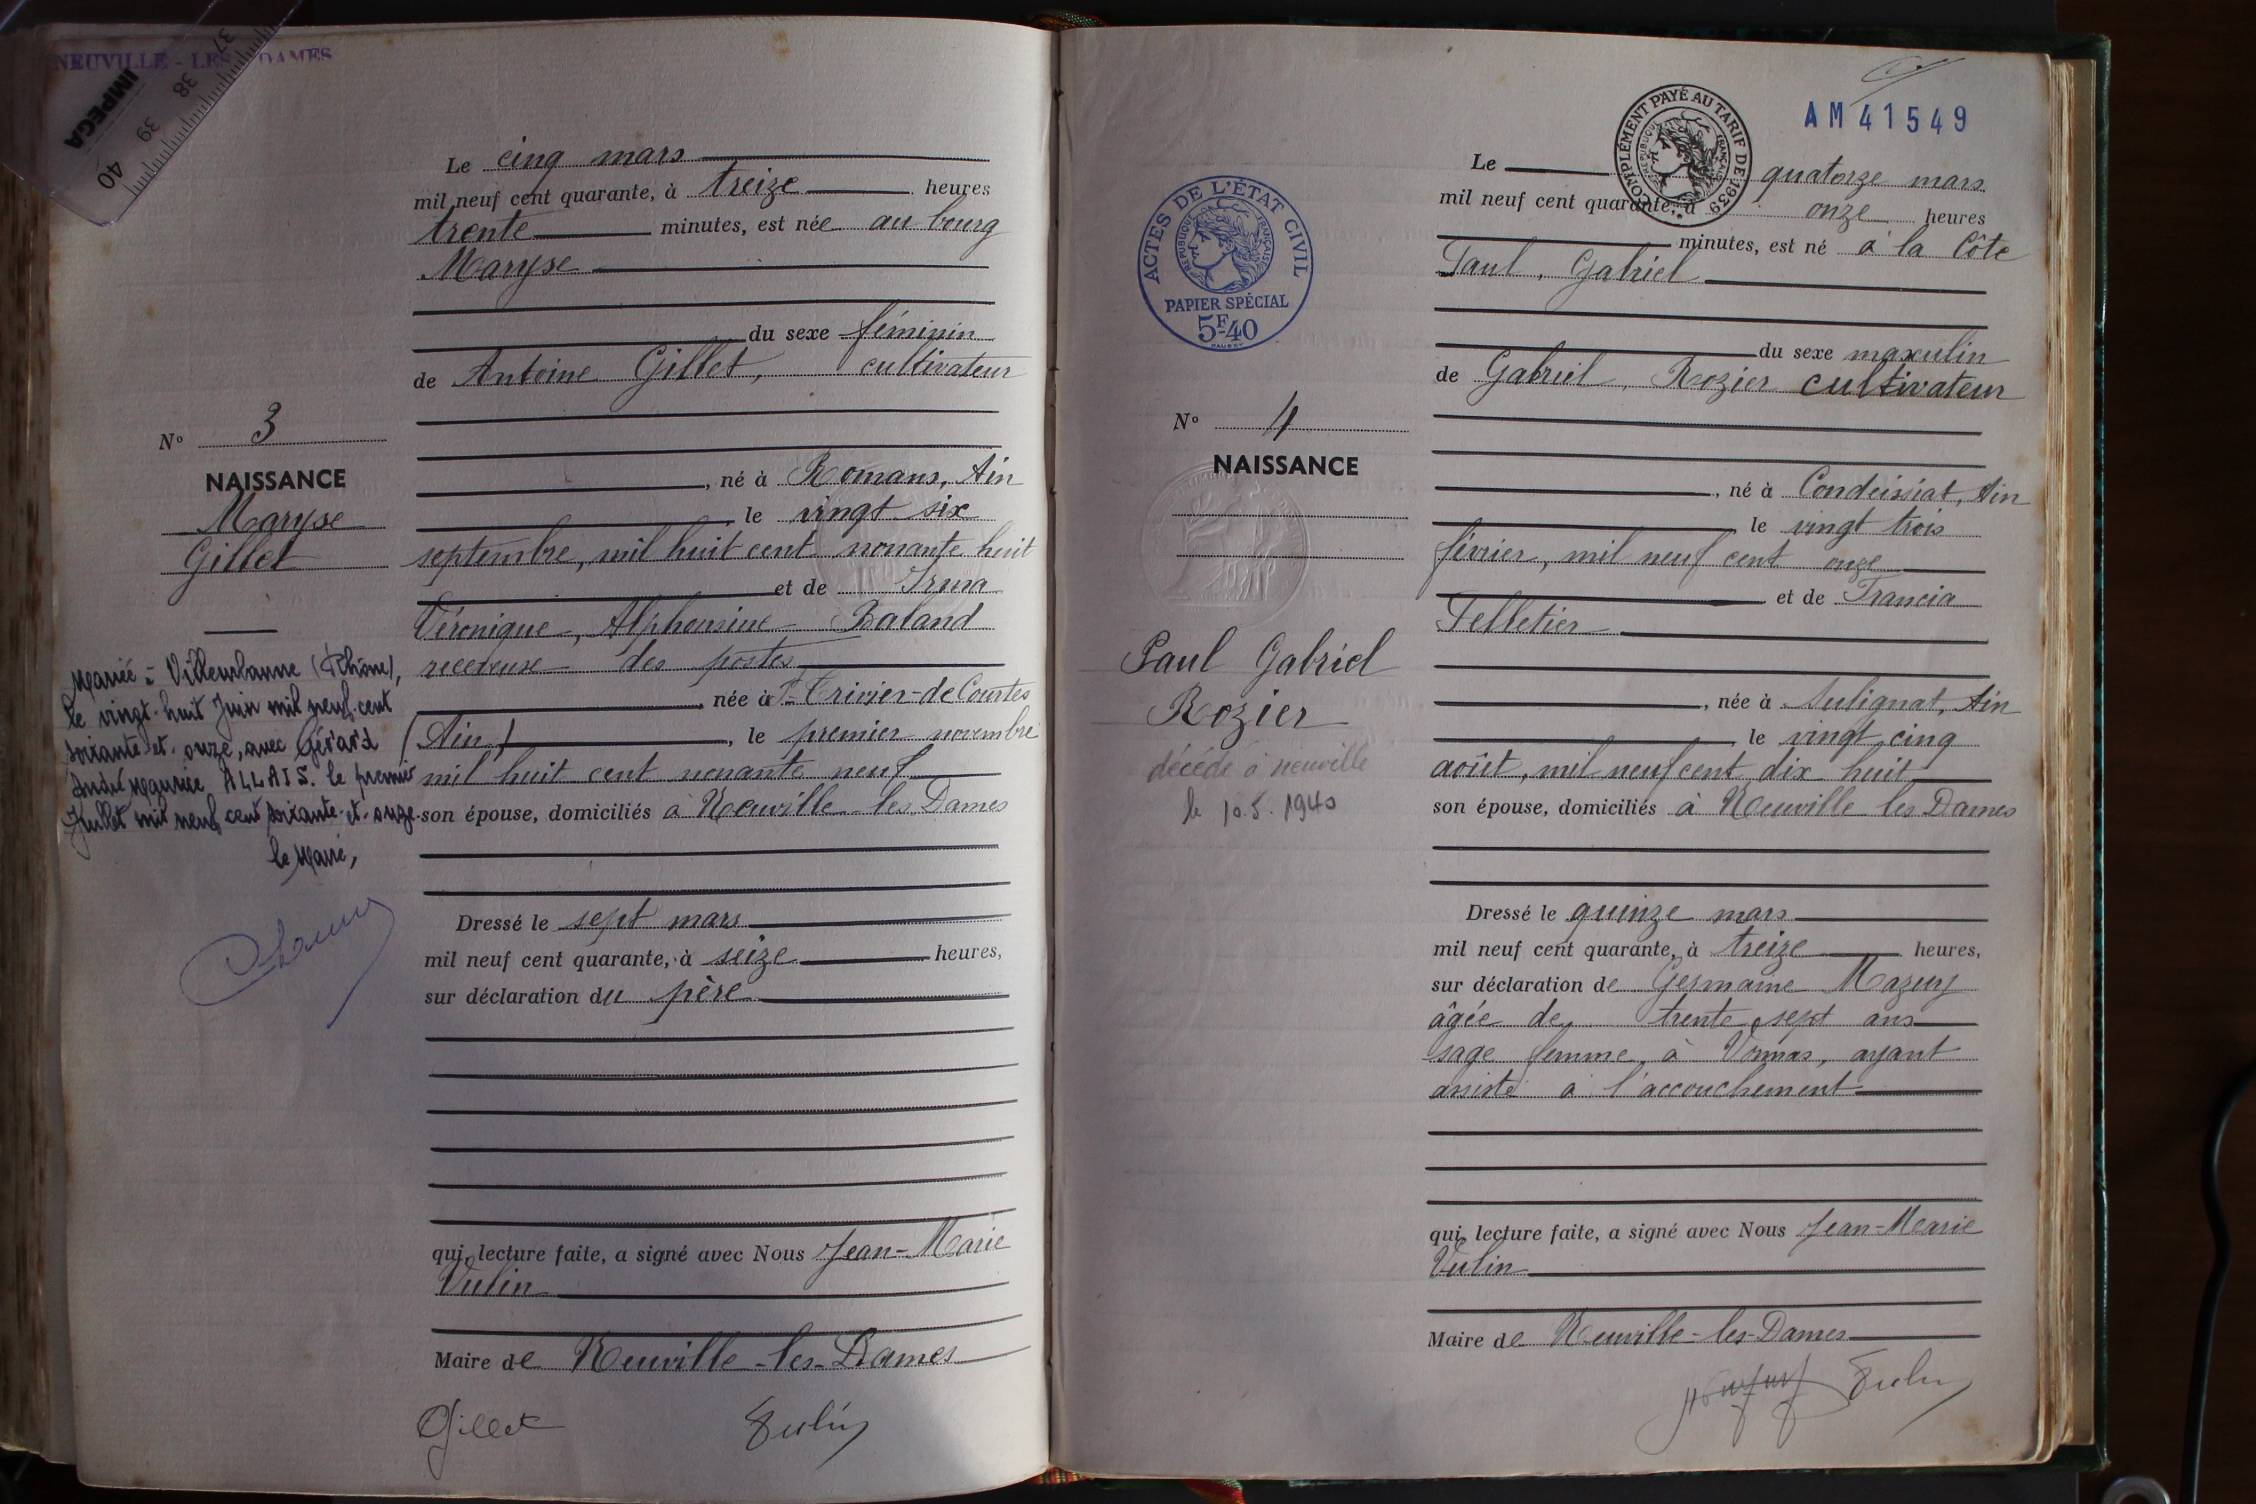 NEUVILLE - LES DAMES
IMPEGA
37
38
39
40
Le cinq mars
mil neuf cent quarante, à treize heures
trente minutes, est née au bourg
Maryse
du sexe féminin
de Antoine Gillet, cultivateur
, né à Romans, Ain
le vingt six
septembre, mil huit cent nonante huit
et de Irma
Véronique, Alphonsine Baland
receveuse des postes
, née à St-Trivier-de Courtes
(Ain) , le premier novembre
mil huit cent nonante neuf
son épouse, domiciliés à Neuville les Dames
Dressé le sept mars
mil neuf cent quarante, à seize heures,
sur déclaration du père
qui, lecture faite, a signé avec Nous Jean-Marie
Vulin
Maire de Neuville-les-Dames
Gillet Vulin
No 3
NAISSANCE
Maryse
Gillet
Mariée à Villeurbanne (Rhône),
le vingt-huit Juin mil neuf-cent
soixante-et-onze, avec Gérard
André Maurice ALLAIS. le premier
Juillet mil neuf cent soixante-et-onze.
le Maire,
AM 41549
COMPLÉMENT PAYÉ AU TARIF DE 1939
RÉPUBLIQUE FRANÇAISE
Le quatorze mars
mil neuf cent quarante, à onze heures
minutes, est né à la Côte
Paul, Gabriel
du sexe masculin
de Gabriel, Rozier cultivateur
, né à Condeissiat, Ain
le vingt trois
février, mil neuf cent onze
et de Francia
Pelletier
, née à Sulignat, Ain
le vingt cinq
août, mil neuf cent dix huit
son épouse, domiciliés à Neuville les Dames
Dressé le quinze mars
mil neuf cent quarante, à treize heures,
sur déclaration de Germaine Mazuy
âgée de trente sept ans
sage femme, à Vonnas, ayant
assisté à l'accouchement
qui, lecture faite, a signé avec Nous Jean-Marie
Vulin
Maire de Neuville-les-Dames
Vulin
ACTES DE L'ÉTAT CIVIL
RÉPUBLIQUE FRANÇAISE
PAPIER SPÉCIAL
5F.40
No 4
NAISSANCE
Paul Gabriel
Rozier
décédé à neuville
le 10.5.1940